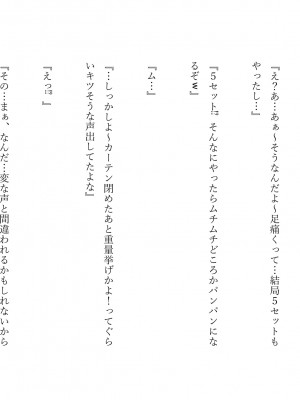 『え？あ…あぁ～そうなんだよ～足痛くって…結局５セットも
やったし…』
『５セット!?そんなにやったらムチムチどころかバンバンにな
るぞｗ』
『ム…』
『…しっかしよ～カーテン閉めたあと重量挙げかよ！ってぐら
いキツそうな声出してたよな』
『えっ!?』
『その…まぁ、なんだ…変な声と間違われるかもしれないから